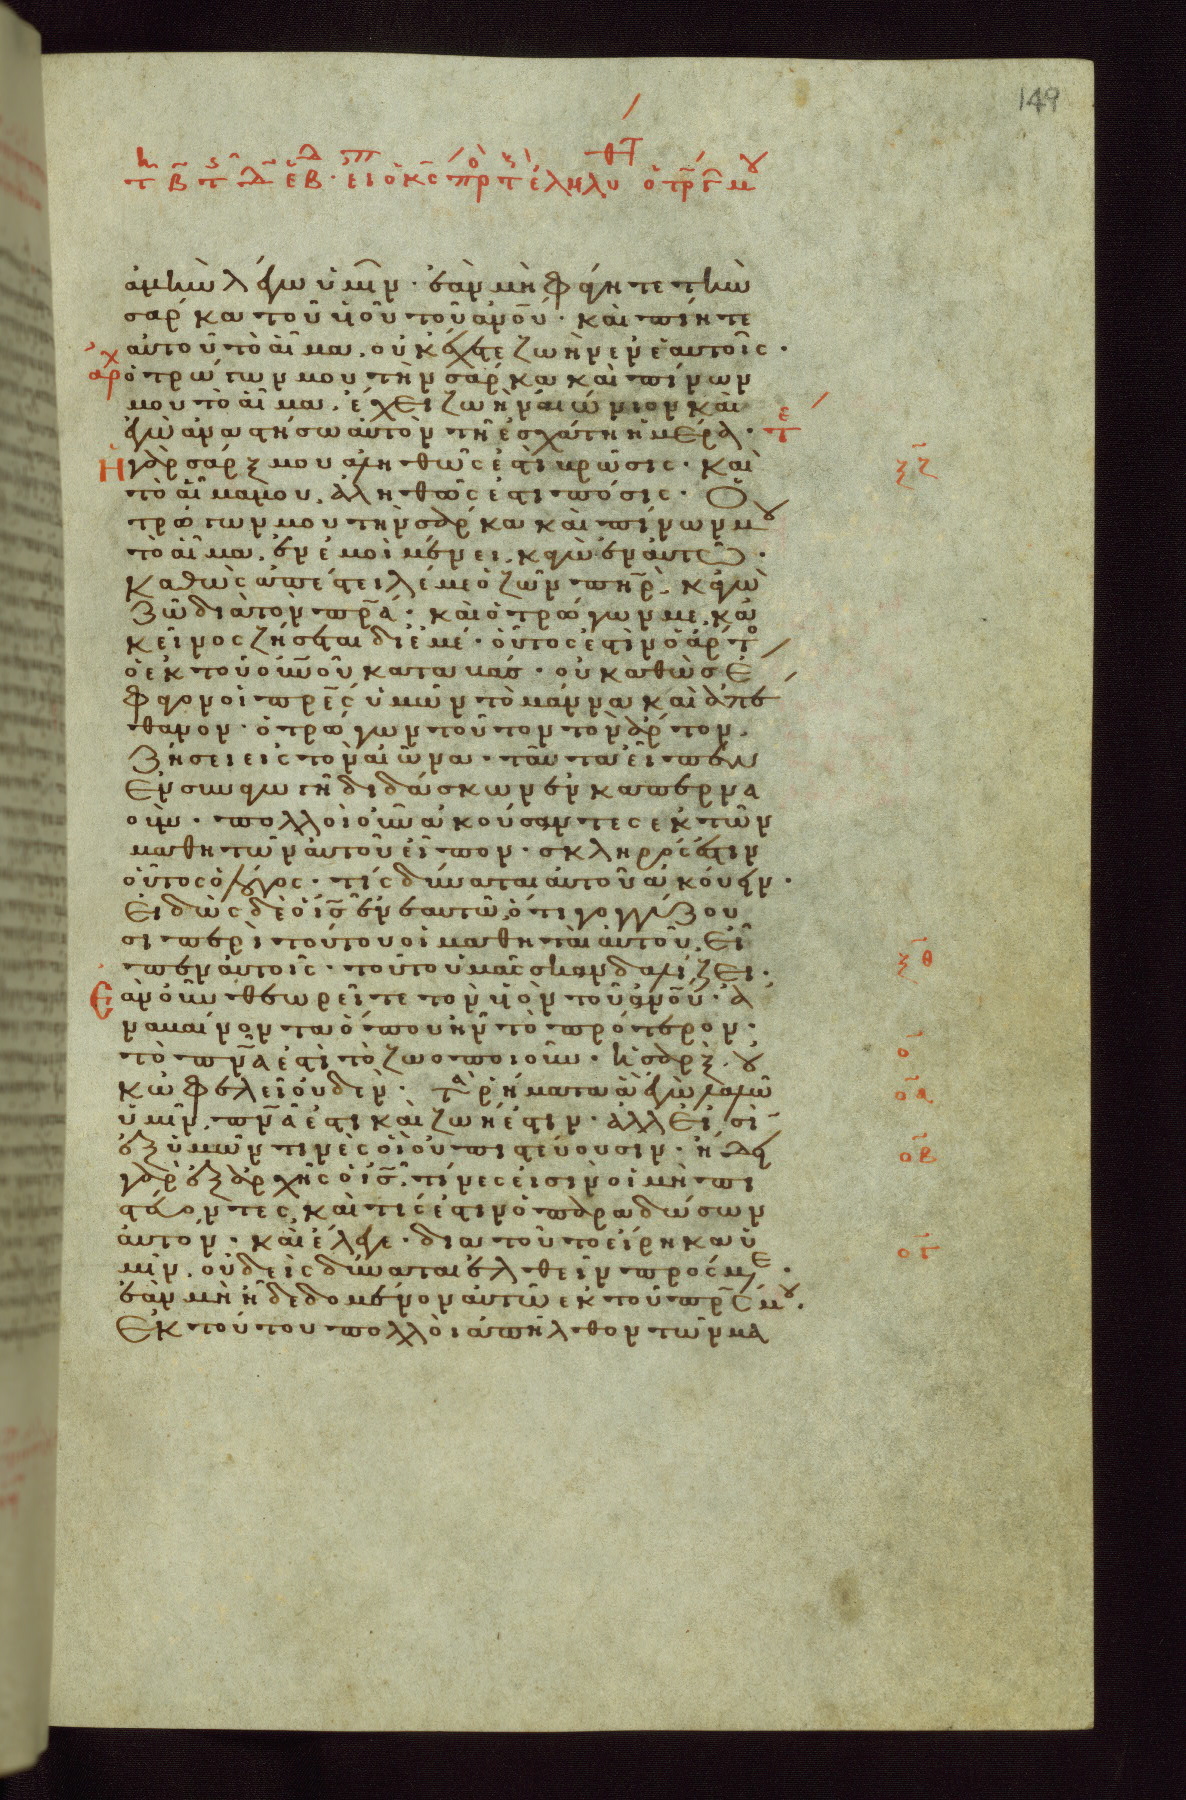 149
ἀμὴν λέγω ὑμῖν· ἐὰν μὴ φάγητε τὴν
σάρκα τοῦ υἱοῦ τοῦ ἀνου· καὶ πίητε
αὐτοῦ τὸ αἷμα, οὐκ ἔχετε ζωὴν ἐν ἑαυτοῖς·
ὁ τρώγων μου τὴν σάρκα καὶ πίνων
μου τὸ αἷμα, ἔχει ζωὴν αἰώνιον καὶ
ἐγὼ ἀναστήσω αὐτὸν τῆ ἐσχάτη ἡμέρα·
Ἡ γὰρ σάρξ μου ἀληθῶς ἐστὶ βρῶσις· καὶ
τὸ αἷμά μου, ἀληθῶς ἐστι πόσις· Ὁ
τρώγων μου τὴν σάρκα καὶ πίνων μου
τὸ αἷμα, ἐν ἐμοὶ μένει, κἀγὼ ἐν αὐτῶ·
Καθὼς ἀπέστειλέ με ὁ ζῶν πηρ, κἀγὼ
ζῶ διὰ τὸν πρα· καὶ ὁ τρώγων με, κἀ
κεῖνος ζήσεται δι ἐμέ· οὗτός ἐστιν ὁ ἄρτο
ὁ ἐκ τοῦ οὐνοῦ καταβάς· οὐ καθὼς ἔ
φαγον οἱ πρες ὑμῶν τὸ μάννα καὶ ἀπέ
θανον· ὁ τρώγων τοῦτον τὸν ἄρτον,
ζήσει εἰς τὸν αἰῶνα· ταῦτα εἶπεν
ἐν συναγωγῆ διδάσκων ἐν καπερνα
ούμ· πολλοὶ οὖν ἀκούσαντες ἐκ τῶν
μαθητῶν αὐτοῦ εἶπον· σκληρός ἐστιν
οὗτος ὁ λόγος· τίς δύναται αὐτοῦ ἀκούειν·
Εἰδὼς δὲ ὁ ις ἐν ἑαυτῶ, ὅτι γογγύζου
σι περὶ τούτου οἱ μαθηταὶ αὐτοῦ, εἶ
πεν αὐτοῖς· τοῦτο ὑμᾶς σκανδαλίζει·
Ἐὰν οὖν θεωρεῖτε τὸν υἱὸν τοῦ ἀνου· ἀ
ναβαίνοντα ὅπου ἦν τὸ πρότερον·
τὸ πνα ἐστὶ τὸ ζωοποιοῦν· ἡ σὰρξ, οὐ
κ ὠφελεῖ οὐδέν· τὰ ῥήματα ἃ ἐγὼ λαλῶ
ὑμῖν, πνα ἐστι καὶ ζωή ἐστιν· ἀλλ εἰσὶ
ἐξ ὑμῶν τινὲς οἳ οὐ πιστεύουσιν· ἤδει
γὰρ ἐξ ἀρχῆς ὁ ις, τίνες εἰσὶν οἱ μὴ πι
στεύοντες, καὶ τίς ἐστιν ὁ παραδώσων
αὐτόν· καὶ ἔλεγε· διὰ τοῦτο εἴρηκα ὑ
μῖν, οὐδεὶς δύναται ἐλθεῖν πρός με·
ἐὰν μὴ ἦ δεδομένον αὐτῶ ἐκ τοῦ πρς μου·
Ἐκ τούτου πολλοὶ ἀπῆλθον τῶν μα
ξζ
ξθ
ο
οα
οβ
ογ